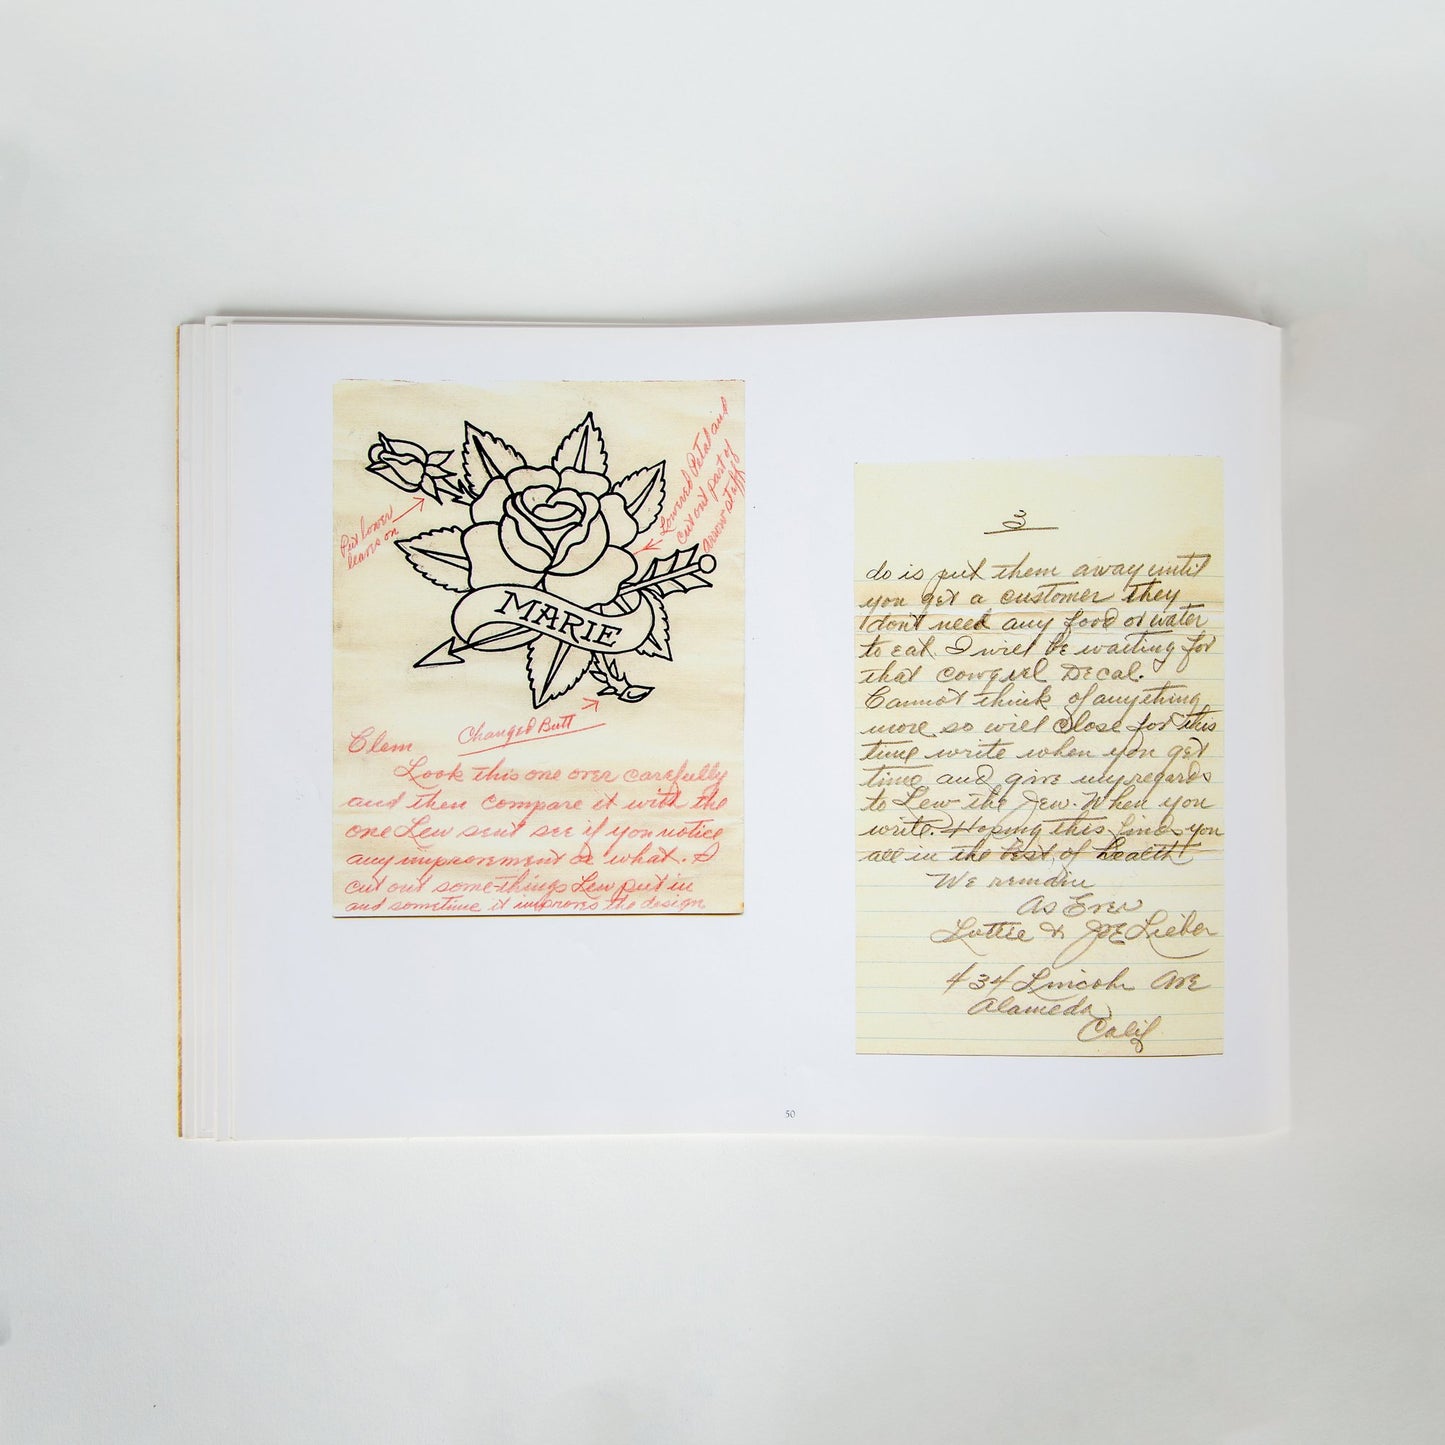 Put lower
leaves on
Lowered Petal and
cut out part of
arrow staff
MARIE
Changed Butt
Clem
Look this one over carefully
and then compare it with the
one Lew sent see if you notice
any improvement or what. I
cut out some things Lew put in
and sometime it improves the design
3
do is put them away until
you get a customer they
don't need any food or water
to eat. I will be waiting for
that Cowgirl Decal.
Cannot think of anything
more so will close for this
time write when you get
time and give my regards
to Lew the Jew. When you
write. Hoping this finds you
all in the best of health
We remain
As Ever
Lottie & Joe Lieber
434 Lincoln Ave
Alameda
Calif
50